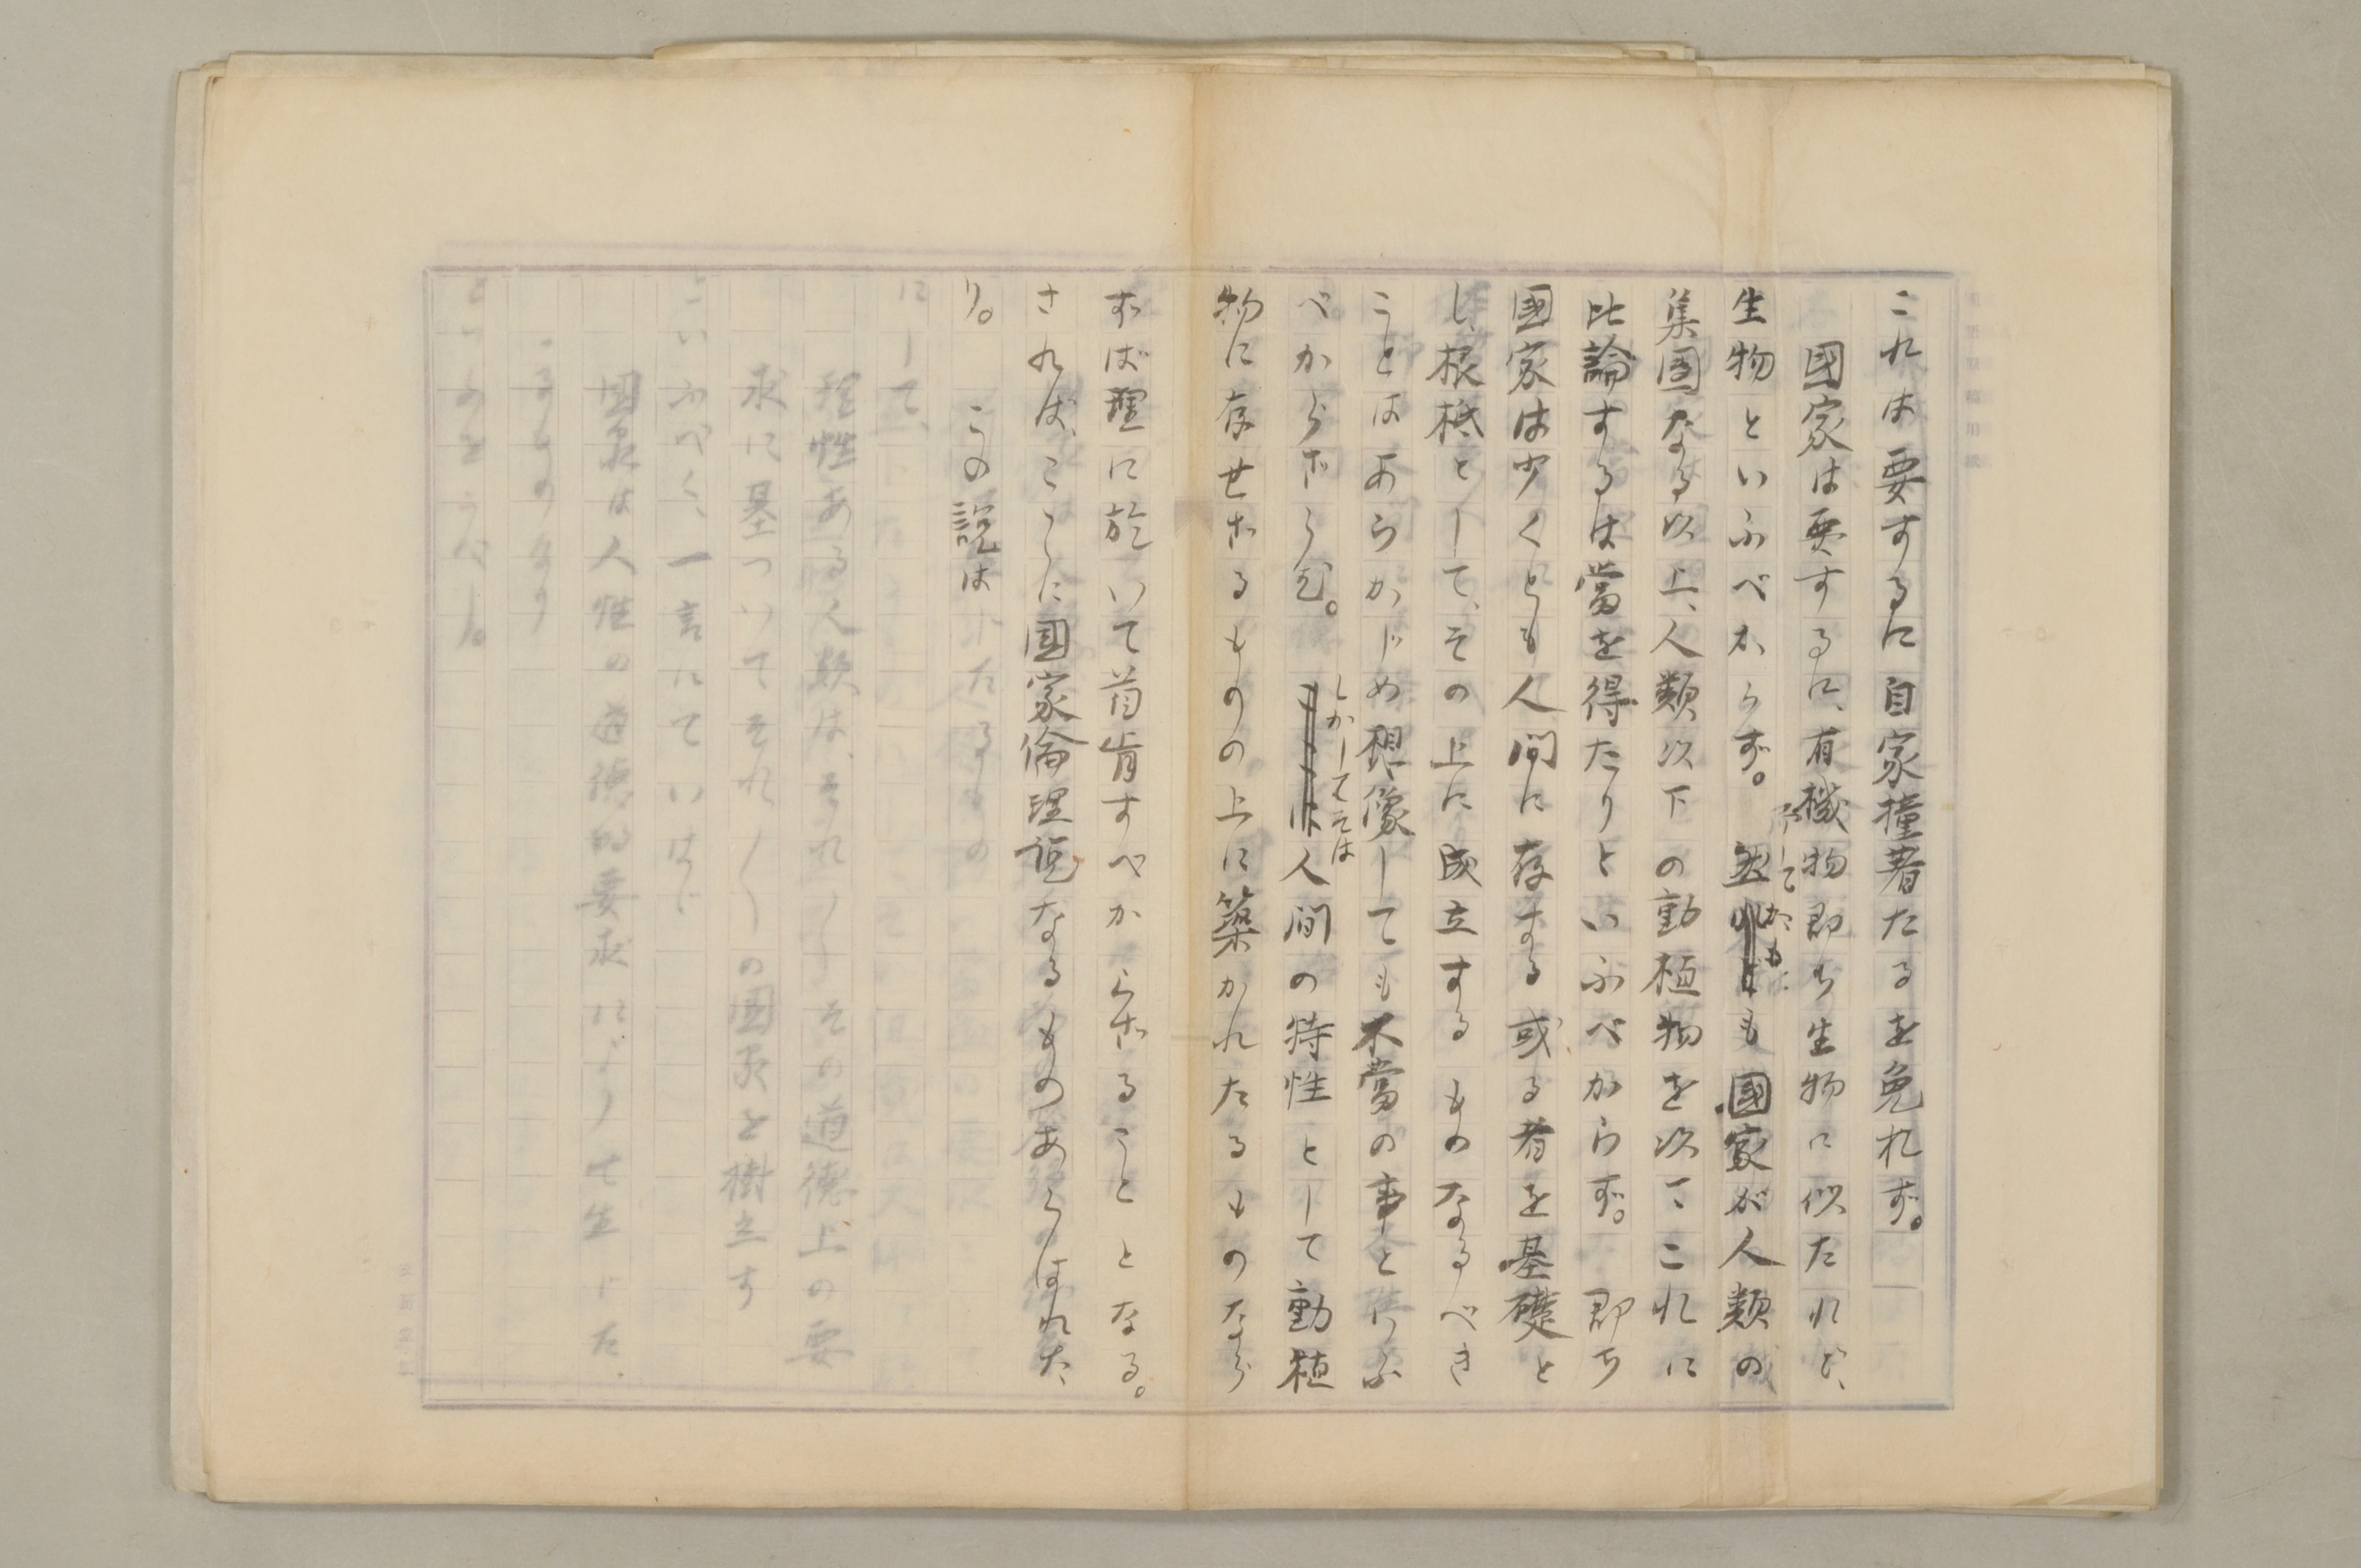 これは要するに自家撞著たるを免れず。
國家は要するに、有機物即ち生物に似たれど、
生物といふべからず。而してかも國家が人類の
集團なる以上、人類以下の動植物を以てこれに
比論するは當を得たりといふべからず。即ち
國家は少くとも人間に存する或る者を基礎と
し、根柢として、その上に成立するものなるべき
ことはあらかじめ想像しても不當の事といふ
べからざらむ。しかしてそは人間の特性として動植
物に存せざるものの上に築かれたるものなら
ずば理に於いて首肯すべからざることとなる。
されば、こゝに國家倫理説なるものあらはれた
り。
この説は
にして、
理性ある人類は、それ〳〵その道徳上の要
求に基づいてそれ〳〵の國家を樹立す
といふべく、一言にていはゞ
國家は人性の道徳的要求によりて生じた
るものなり